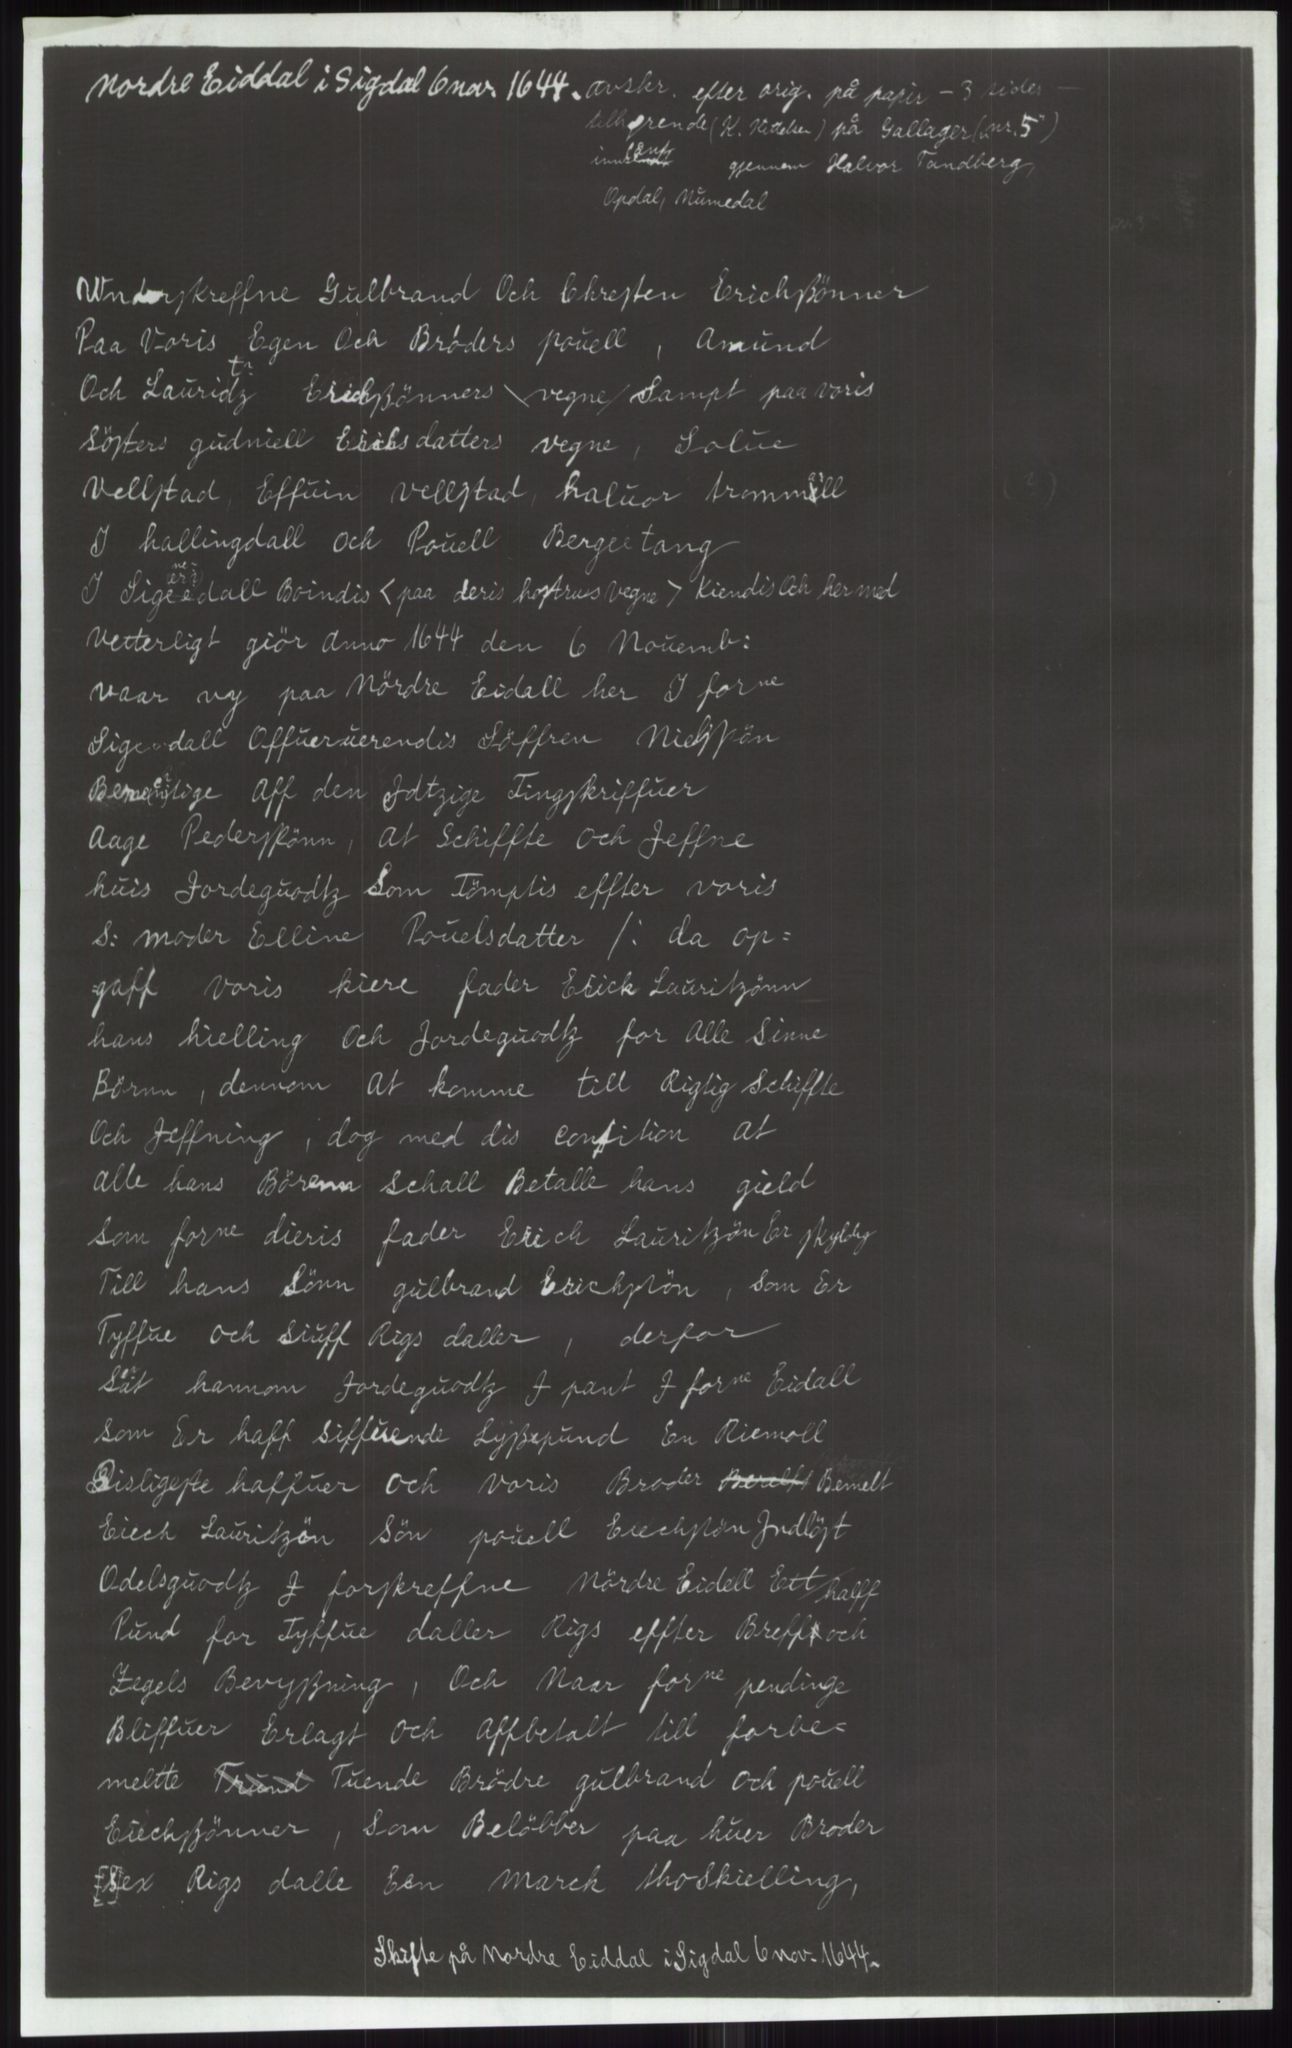 Nordre Eiddal i Sigdal 6 nov. 1644. avskr. efter orig. på papir – 3 sider –
tilhørende (K. Kittelsen) på Gallager (nr. 5)
innsent gjennem Halvor Tandberg,
Opdal, Numedal
Wnderskreffne Gulbrand Och Chresten Erichßönner
Paa Voris Egen Och Bröders pouell, Amund
Och Lauridtz Erichßönners vegne Sampt paa voris
Sösters gudniell Erichsdatters vegne, Solue
Vellstad, Effuin vellstad, haluor trommill
I hallingdall och Pouell Bergetang
I Sigeedall Boindis <paa deris hostrues vegne> Kiendis Och her med
Vetterligt giör Anno 1644 den 6 Nouemb:
vaar vy paa Nördre Eidall her I forne
Sigedall Offueruerendis Söffren Nielßön
aff den Jdtzige Tingskriffuer
Aage Pederßönn, at Schiffte och Jeffne
huis Jordeguodtz Som Tömptis effter voris
S: moder Elline Pouelsdatter /: da op=
gaff voris kiere fader Erick Lauritzönn
hans hielling Och Jordeguodtz for Alle Sinne
Börnn, dennom At komme till Rigtig Schiffte
Och Jeffning, dog med dis condition at
alle hans Börenn schall Betalle hans gield
som forne dieris fader Erich Lauritzön Er skyldig
Till hans Sönn gulbrand Erichßön, som Er
Tyffue och siuff Rigs daller, derfor
Sat hannom Jordeguodtz J pant J forne Eidall
som Er haff siffuende Lyßepund En Riemoll
Disligeste haffuer och voris Broder Bemelt
Eriech Lauritzön Sön pouell Eriechßön Jndlöst
Odelsguodtz J forskreffne Nördre Eidell Ett halff
Pund for Tyffue daller Rigs effter Breff och
Zegels Bevyßning, Och Naar forne pendinge
Bliffuer Erlagt och affbetalt till forbe=
meltte Tuende Brödre gulbrand och pouell
Eriechßönner, Som Belöbber paa huer Broder
[S]ex Rigs dalle Een marck tho Skielling,
Skifte på Nordre Eiddal i Sigdal 6 nov. 1644.